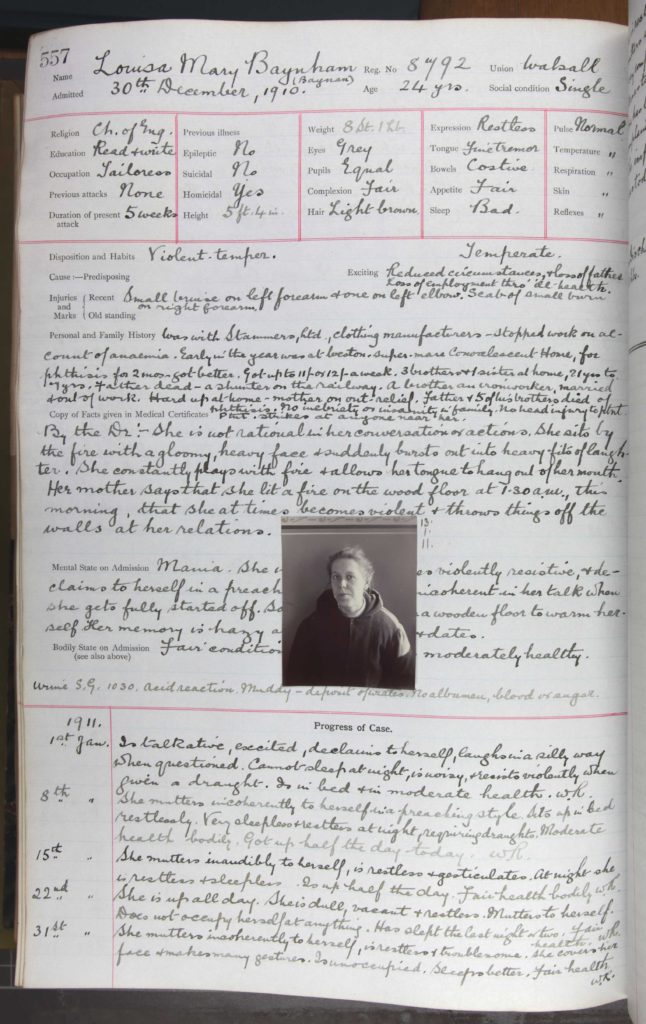 557
Name Louisa Mary Baynham (Baynan) Reg. No 8792 Union Walsall
Admitted 30th December, 1910. Age 24 yrs. Social condition Single
Religion Ch. of Eng. Previous illness Weight 8 St. 1 lb. Expression Restless Pulse Normal
Education Read & write Epileptic No Eyes Grey Tongue Fine tremor Temperature "
Occupation Tailoress Suicidal No Pupils Equal Bowels Costive Respiration "
Previous attacks None Homicidal Yes Complexion Fair Appetite Fair Skin "
Duration of present attack 5 weeks Height 5 ft. 4 in. Hair Light brown Sleep Bad. Reflexes "
Disposition and Habits Violent-temper. Temperate.
Cause:—Predisposing Exciting Reduced circumstances, & loss of father
Loss of employment thro' ill-health.
Injuries and Marks { Recent Small bruise on left forearm & one on left elbow. Scab of small burn
Old standing on right forearm.
Personal and Family History Was with Stammers, Ltd., clothing manufacturers – stopped work on ac-
count of anaemia. Early in the year was at Weston-super-mare Convalescent Home, for
phthisis for 2 mos – got better. Got up to 11/ or 12/- a week. 3 brothers & 1 sister at home, 21 yrs to
7 yrs. Father dead – a shunter on the railway. A brother an ironworker, married
& out of work. Hard up at home – mother on out-relief. Father & 5 of his brothers died of
phthisis. No inebriety or insanity in family. No head injury to Pt.
Copy of Facts given in Medical Certificates strikes at anyone near her.
By the Dr:- She is not rational in her conversation or actions. She sits by
the fire with a gloomy, heavy face & suddenly bursts out into heavy fits of laugh-
ter. She constantly plays with fire & allows her tongue to hang out of her mouth.
Her mother says that she lit a fire on the wood floor at 1-30 a.m., this
morning, that she at times becomes violent & throws things off the
walls at her relations.
13.
1.
11.
Mental State on Admission Mania. She violently resistive, & de-
claims to herself in a preach incoherent in her talk when
she gets fully started off. a wooden floor to warm her-
self. Her memory is hazy & dates.
Bodily State on Admission Fair condition moderately healthy.
(see also above)
Urine S.G. 1030. Acid reaction. Muddy – deposit of urates. No albumen, blood or sugar.
Progress of Case.
1911.
1st Jan. Is talkative, excited, declaims to herself, laughs in a silly way
when questioned. Cannot sleep at night, is noisy, & resists violently when
given a draught. Is in bed & in moderate health. W.R.
8th " She mutters incoherently to herself in a preaching style. Sits up in bed
restlessly. Very sleepless & restless at night, requiring draughts. Moderate
health bodily. Got up half the day today. W.R.
15th " She mutters inaudibly to herself, is restless & gesticulates. At night she
is restless & sleepless. Is up half the day. Fair health bodily W.R.
22nd " She is up all day. She is dull, vacant & restless. Mutters to herself.
Does not occupy herself at anything. Has slept the last night or two. Fair
health. W.R.
31st " She mutters incoherently to herself, is restless & troublesome. She covers her
face & makes many gestures. Is unoccupied. Sleeps better. Fair health
W.R.